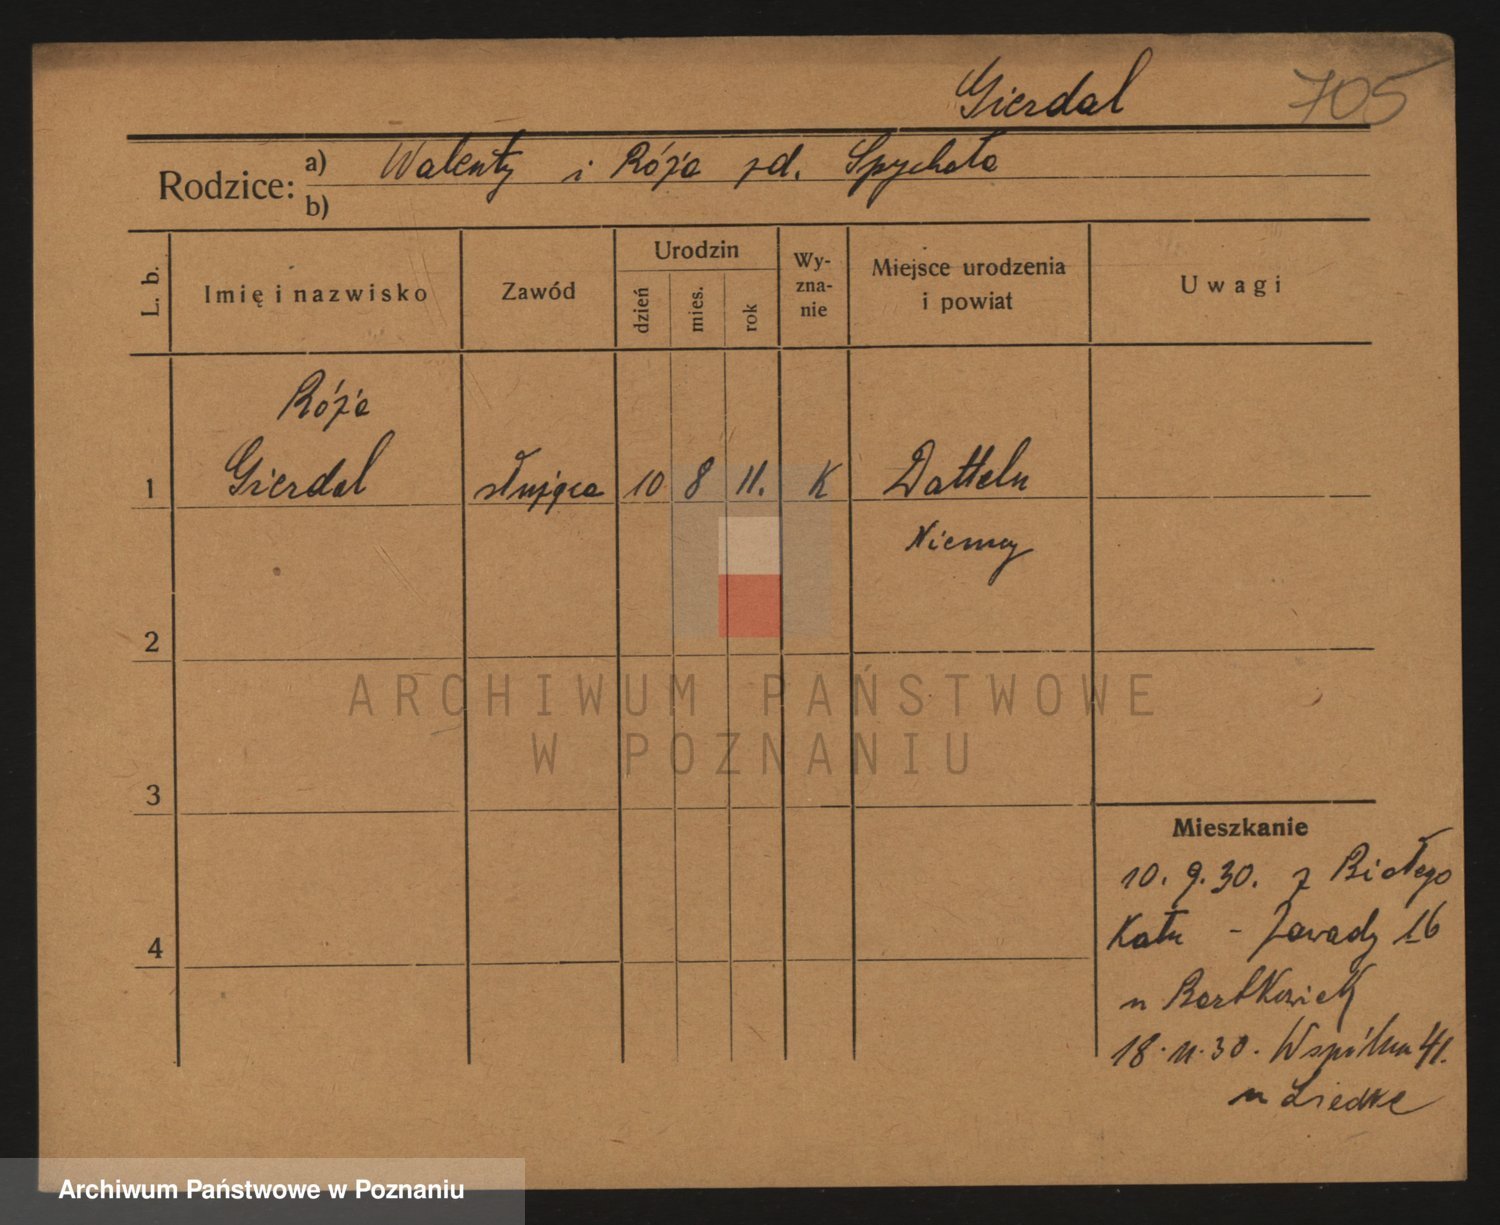 Gierdal 705
Rodzice: a) Walenty i Róża zd. Spychała
b)
L. b. Imię i nazwisko Zawód Urodzin dzień mies. rok Wyznanie Miejsce urodzenia i powiat Uwagi
Róża
1 Gierdal służąca 10 8 11. K Datteln
Niemcy
2
3
4
Mieszkanie
10. 9. 30. z Białego
Kału - Zawady 16
u Bartkowiak
18. 11. 30. Wspólna 41.
u Liedke
ARCHIWUM PAŃSTWOWE
W POZNANIU
Archiwum Państwowe w Poznaniu